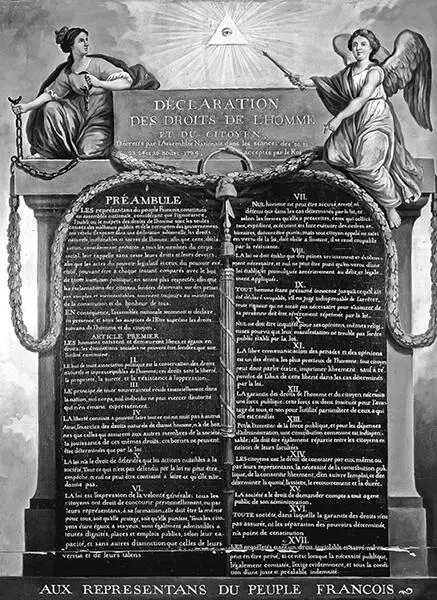 DÉCLARATION
DES DROITS DE L'HOMME
ET DU CITOYEN,
Décretés par l'Assemblée Nationale dans les séances des 20, 21
23, 24 et 26 août 1789, acceptés par le Roi
PRÉAMBULE
LES représentans du peuple François, constitués
en assemblée nationale, considérant que l'ignorance,
l'oubli ou le mépris des droits de l'homme sont les seules
causes des malheurs publics et de la corruption des gouvernemens
ont résolu d'exposer, dans une déclaration solemnelle, les droits
naturels, inaliénables et sacrés de l'homme, afin que cette décla-
ration, constamment présente à tous les membres du corps
social, leur rappelle sans cesse leurs droits et leurs devoirs,
afin que les actes du pouvoir législatif et ceux du pouvoir exé-
cutif, pouvant être à chaque instant comparés avec le but
de toute institution politique, en soient plus respectés; afin que
les réclamations des citoyens, fondées désormais sur des princi-
pes simples et incontestables, tournent toujours au maintien
de la constitution et du bonheur de tous.
EN conséquence, l'assemblée nationale reconnoît et déclare
en présence et sous les auspices de l'Etre suprême les droits
suivans de l'homme et du citoyen.
ARTICLE PREMIER.
LES hommes naissent et demeurent libres et égaux en
droits; les distinctions sociales ne peuvent être fondées que sur
l'utilité commune.
II.
LE but de toute association politique est la conservation des droits
naturels et imprescriptibles de l'homme; ces droits sont la liberté,
la propriété, la sureté, et la résistance à l'oppression.
III.
LE principe de toute souveraineté réside essentiellement dans
la nation, nul corps, nul individu ne peut exercer d'autorité
qui n'en émane expressement.
IV.
LA liberté consiste à pouvoir faire tout ce qui ne nuit pas à autrui
Ainsi, l'exercice des droits naturels de chaque homme, n'a de bor-
nes que celles qui assurent aux autres membres de la société
la jouissance de ces mêmes droits; ces bornes ne peuvent
être déterminées que par la loi.
V.
LA loi n'a le droit de défendre que les actions nuisibles à la
société. Tout ce qui n'est pas défendu par la loi ne peut être
empêché, et nul ne peut être contraint à faire ce qu'elle n'or-
donne pas.
VI.
LA loi est l'expression de la volonté générale; tous les
citoyens ont droit de concourir personnellement, ou par
leurs représentans, à sa formation; elle doit être la même
pour tous, soit qu'elle protege, soit qu'elle punisse. Tous les cito-
yens étant égaux à ses yeux, sont également admissibles à
toutes dignités, places et emplois publics, selon leur ca-
pacité, et sans autres distinction que celles de leurs
vertus et de leurs talens.
VII.
NUL homme ne peut être accusé, arrêté, ni
détenu que dans les cas déterminés par la loi, et
selon les formes qu'elle a prescrites, ceux qui sollici-
tent, expédient, exécutent ou font exécuter des ordres ar-
bitraires, doivent être punis; mais tout citoyen appelé ou saisi
en vertu de la loi, doit obéir à l'instant, il se rend coupable
par la résistance.
VIII.
LA loi ne doit établir que des peines strictement et évidem-
ment nécessaires, et nul ne peut être puni qu'en vertu d'une
loi établie et promulguée antérieurement au délit, et légale-
ment appliquée.
IX.
TOUT homme étant présumé innocent jusqu'à ce qu'il ait
été déclaré coupable, s'il est jugé indispensable de l'arrêter,
toute rigueur qui ne seroit pas nécessaire pour s'assurer de
sa personne doit être sévèrement réprimée par la loi.
X.
NUL ne doit être inquiété pour ses opinions, mêmes reli-
gieuses pourvu que leur manifestation ne trouble pas l'ordre
public établi par la loi.
XI.
LA libre communication des pensées et des opinions
est un des droits les plus précieux de l'homme; tout citoyen
peut donc parler, écrire, imprimer librement, sauf à ré-
pondre de l'abus de cette liberté dans les cas déterminés
par la loi.
XII.
LA garantie des droits de l'homme et du citoyen nécessite
une force publique; cette force est donc instituée pour l'avan-
tage de tous, et non pour l'utilité particuliere de ceux à qui
elle est confiée.
XIII.
Pour l'entretien de la force publique, et pour les dépenses
d'administration, une contribution commune est indispen-
sable; elle doit être également répartie entre les citoyens en
raison de leurs facultés.
XIV.
LES citoyens ont le droit de constater par eux-même ou
par leurs représentans, la nécessité de la contribution pub-
lique, de la consentir librement, d'en suivre l'emploi, et d'en
déterminer la quotité, l'assiette, le recouvrement et la durée.
XV.
LA société a le droit de demander compte à tout agent
public de son administration.
XVI.
TOUTE société, dans laquelle la garantie des droits n'est
pas assurée, ni la séparation des pouvoirs déterminée,
n'a point de constitution.
XVII.
LES propriétés étant un droit inviolable et sacré, nul ne
peut en être privé, si ce n'est lorsque la nécessité publique,
légalement constatée, l'exige évidemment, et sous la condi-
tion d'une juste et préalable indemnité.
AUX REPRESENTANS DU PEUPLE FRANCOIS